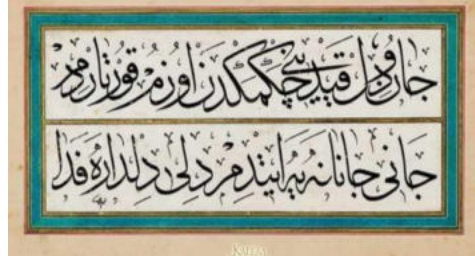 جان و دل قیدینی چکمکدن اوزم قورتاردم
جانی جانانه یه ایتدم دلی دلداره فدا